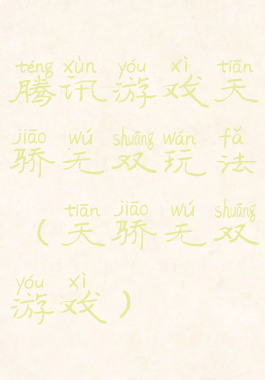 téng xùn yóu xì tiān
腾讯游戏天
jiāo wú shuāng wán fǎ
骄无双玩法
tiān jiāo wú shuāng
（天骄无双
yóu xì
游戏）